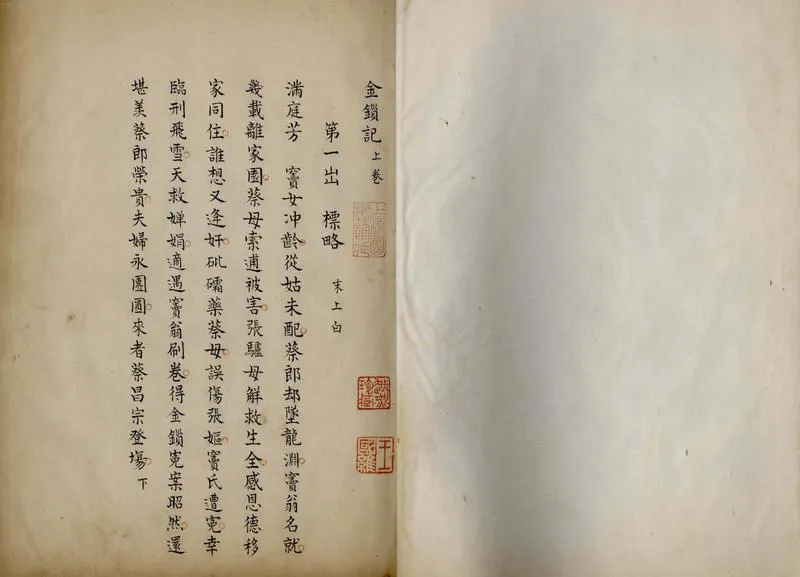 金鎖記 上卷
第一出 標略 末上白
滿庭芳 竇女冲齡從姑未配蔡郎却墜龍淵竇翁名就
幾載離家園蔡母索逋被害張驢母解救生全感恩德移
家同住誰想又逢奸砒礵藥蔡母誤傷張嫗竇氏遭寃幸
臨刑飛雪天救嬋娟適遇竇翁刷卷得金鎖寃案昭然還
堪羡蔡郎榮貴夫婦永團圓來者蔡昌宗登塲 下
上海圖書館藏
王國維